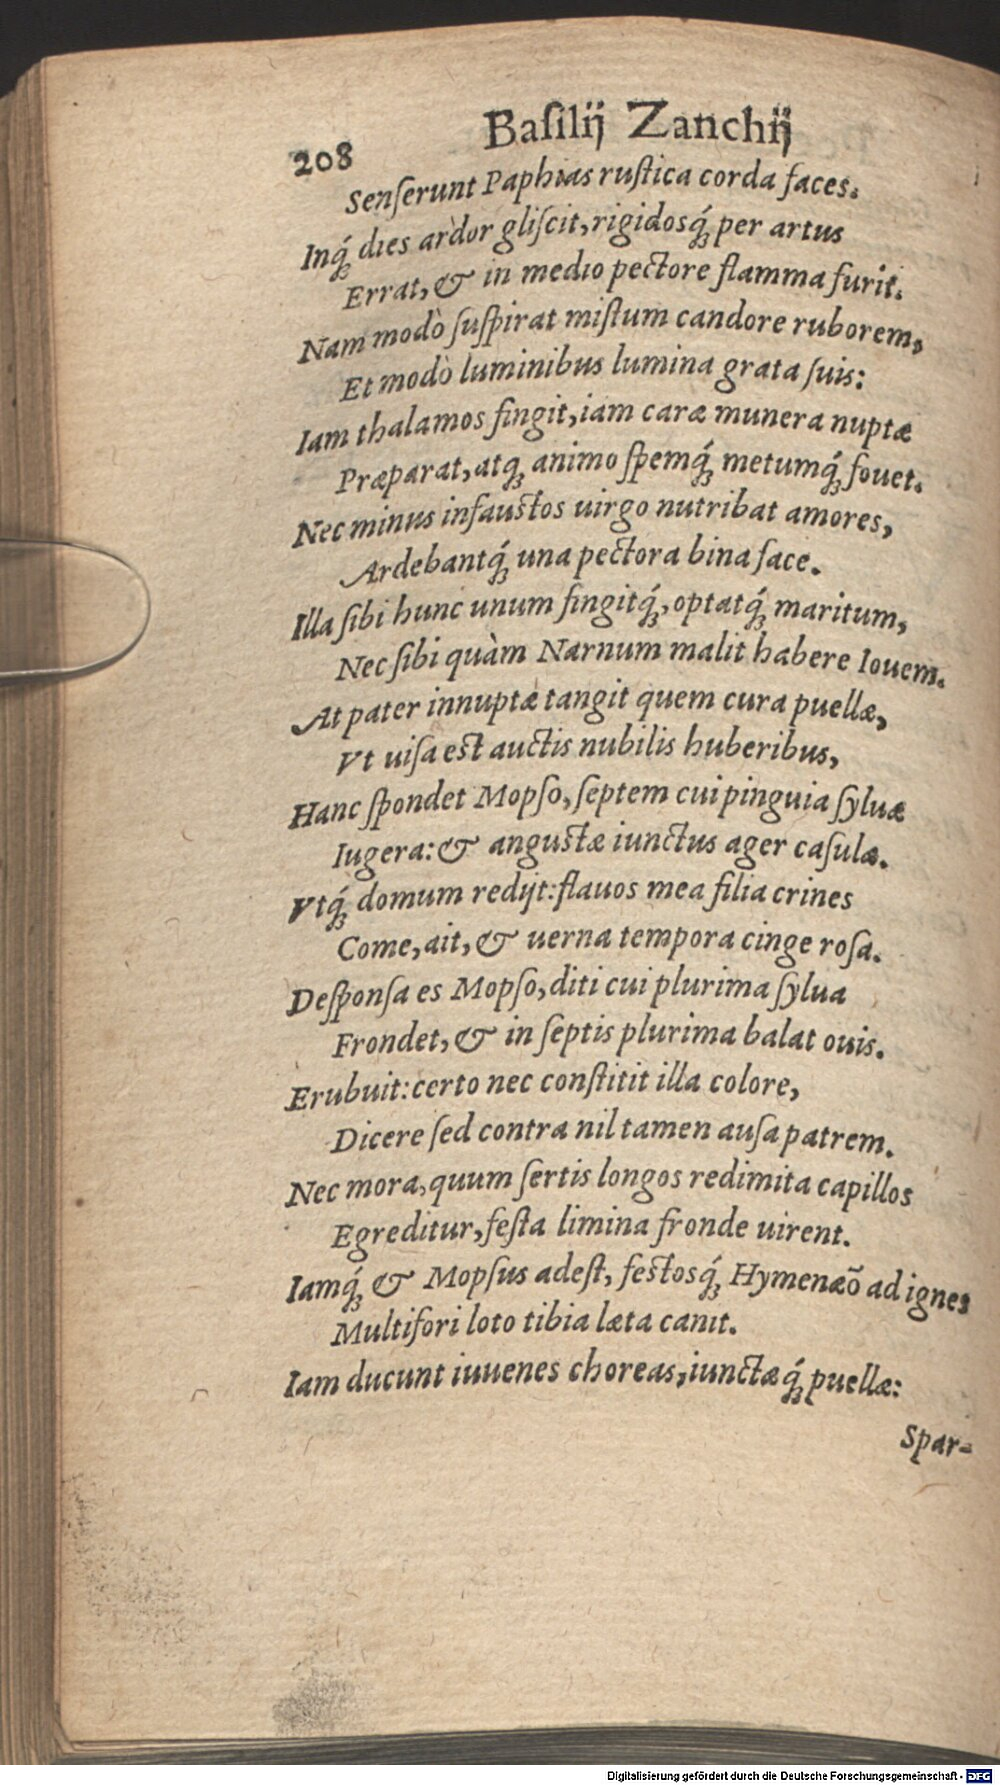 Basilij Zanchij
208
Senserunt Paphias rustica corda faces.
Inq́; dies ardor gliscit, rigidosq́; per artus
Errat, & in medio pectore flamma furit.
Nam modò suspirat mistum candore ruborem,
Et modò luminibus lumina grata suis:
Iam thalamos fingit, iam caræ munera nuptæ
Præparat, atq; animo spemq́; metumq́; fouet.
Nec minus infaustos uirgo nutribat amores,
Ardebantq́; una pectora bina face.
Illa sibi hunc unum fingitq́;, optatq́; maritum,
Nec sibi quàm Narnum malit habere Iouem.
At pater innuptæ tangit quem cura puellæ,
Vt uisa est auctis nubilis huberibus,
Hanc spondet Mopso, septem cui pinguia syluæ
Iugera: & angustæ iunctus ager casulæ.
Vtq́; domum redijt: flauos mea filia crines
Come, ait, & uerna tempora cinge rosa.
Desponsa es Mopso, diti cui plurima sylua
Frondet, & in septis plurima balat ouis.
Erubuit: certo nec constitit illa colore,
Dicere sed contra nil tamen ausa patrem.
Nec mora, quum sertis longos redimita capillos
Egreditur, festa limina fronde uirent.
Iamq́; & Mopsus adest, festosq́; Hymenæō ad ignes
Multifori loto tibia læta canit.
Iam ducunt iuuenes choreas, iunctæq́; puellæ:
Spar-
Digitalisierung gefördert durch die Deutsche Forschungsgemeinschaft - DFG